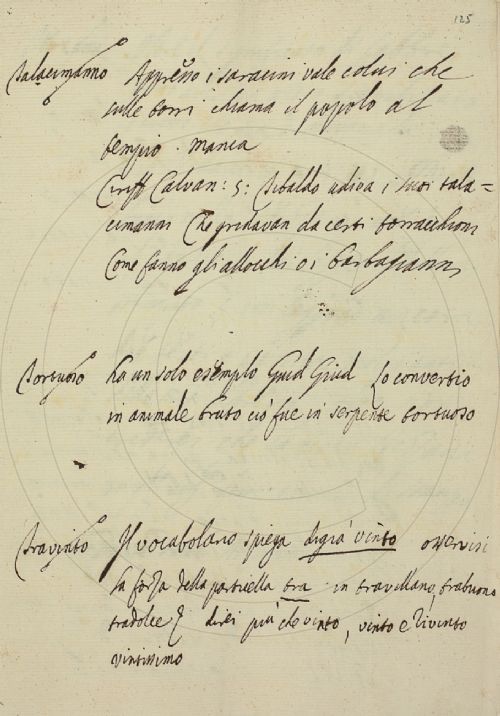 125
Talacimanno Appresso i saracini vale colui che
sulle torri chiama il popolo al
tempio. manca
Ciriff Calvan: 5: Tibaldo udiva i suoi tala=
cimanni Che gridavan da certi torraccioni
Come fanno gli allocchi o i barbagianni
Tortuoso ha un solo esemplo Guid Giud Lo convertio
in animale bruto ciò fue in serpente tortuoso
Travinto Il vocabolario spiega digià vinto osservisi
la forza della particella tra in travillano, trabuono
tradolce direi più che vinto, vinto e rivinto
vintissimo